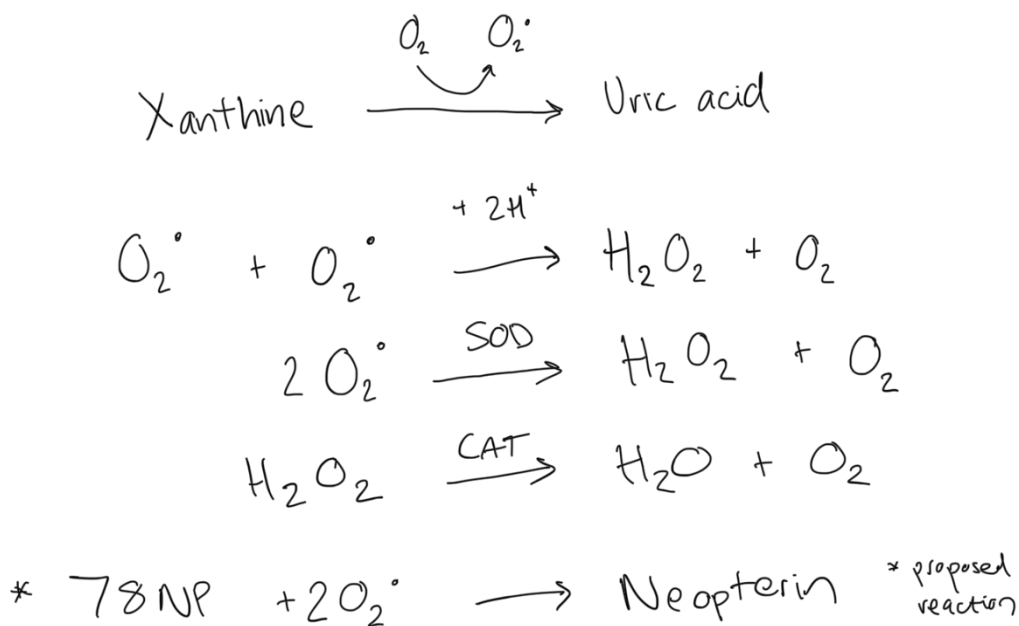 O₂ O₂•
Xanthine → Uric acid
+ 2H⁺
O₂• + O₂• → H₂O₂ + O₂
SOD
2 O₂• → H₂O₂ + O₂
CAT
H₂O₂ → H₂O + O₂
* 78NP + 2O₂• → Neopterin
* proposed
reaction